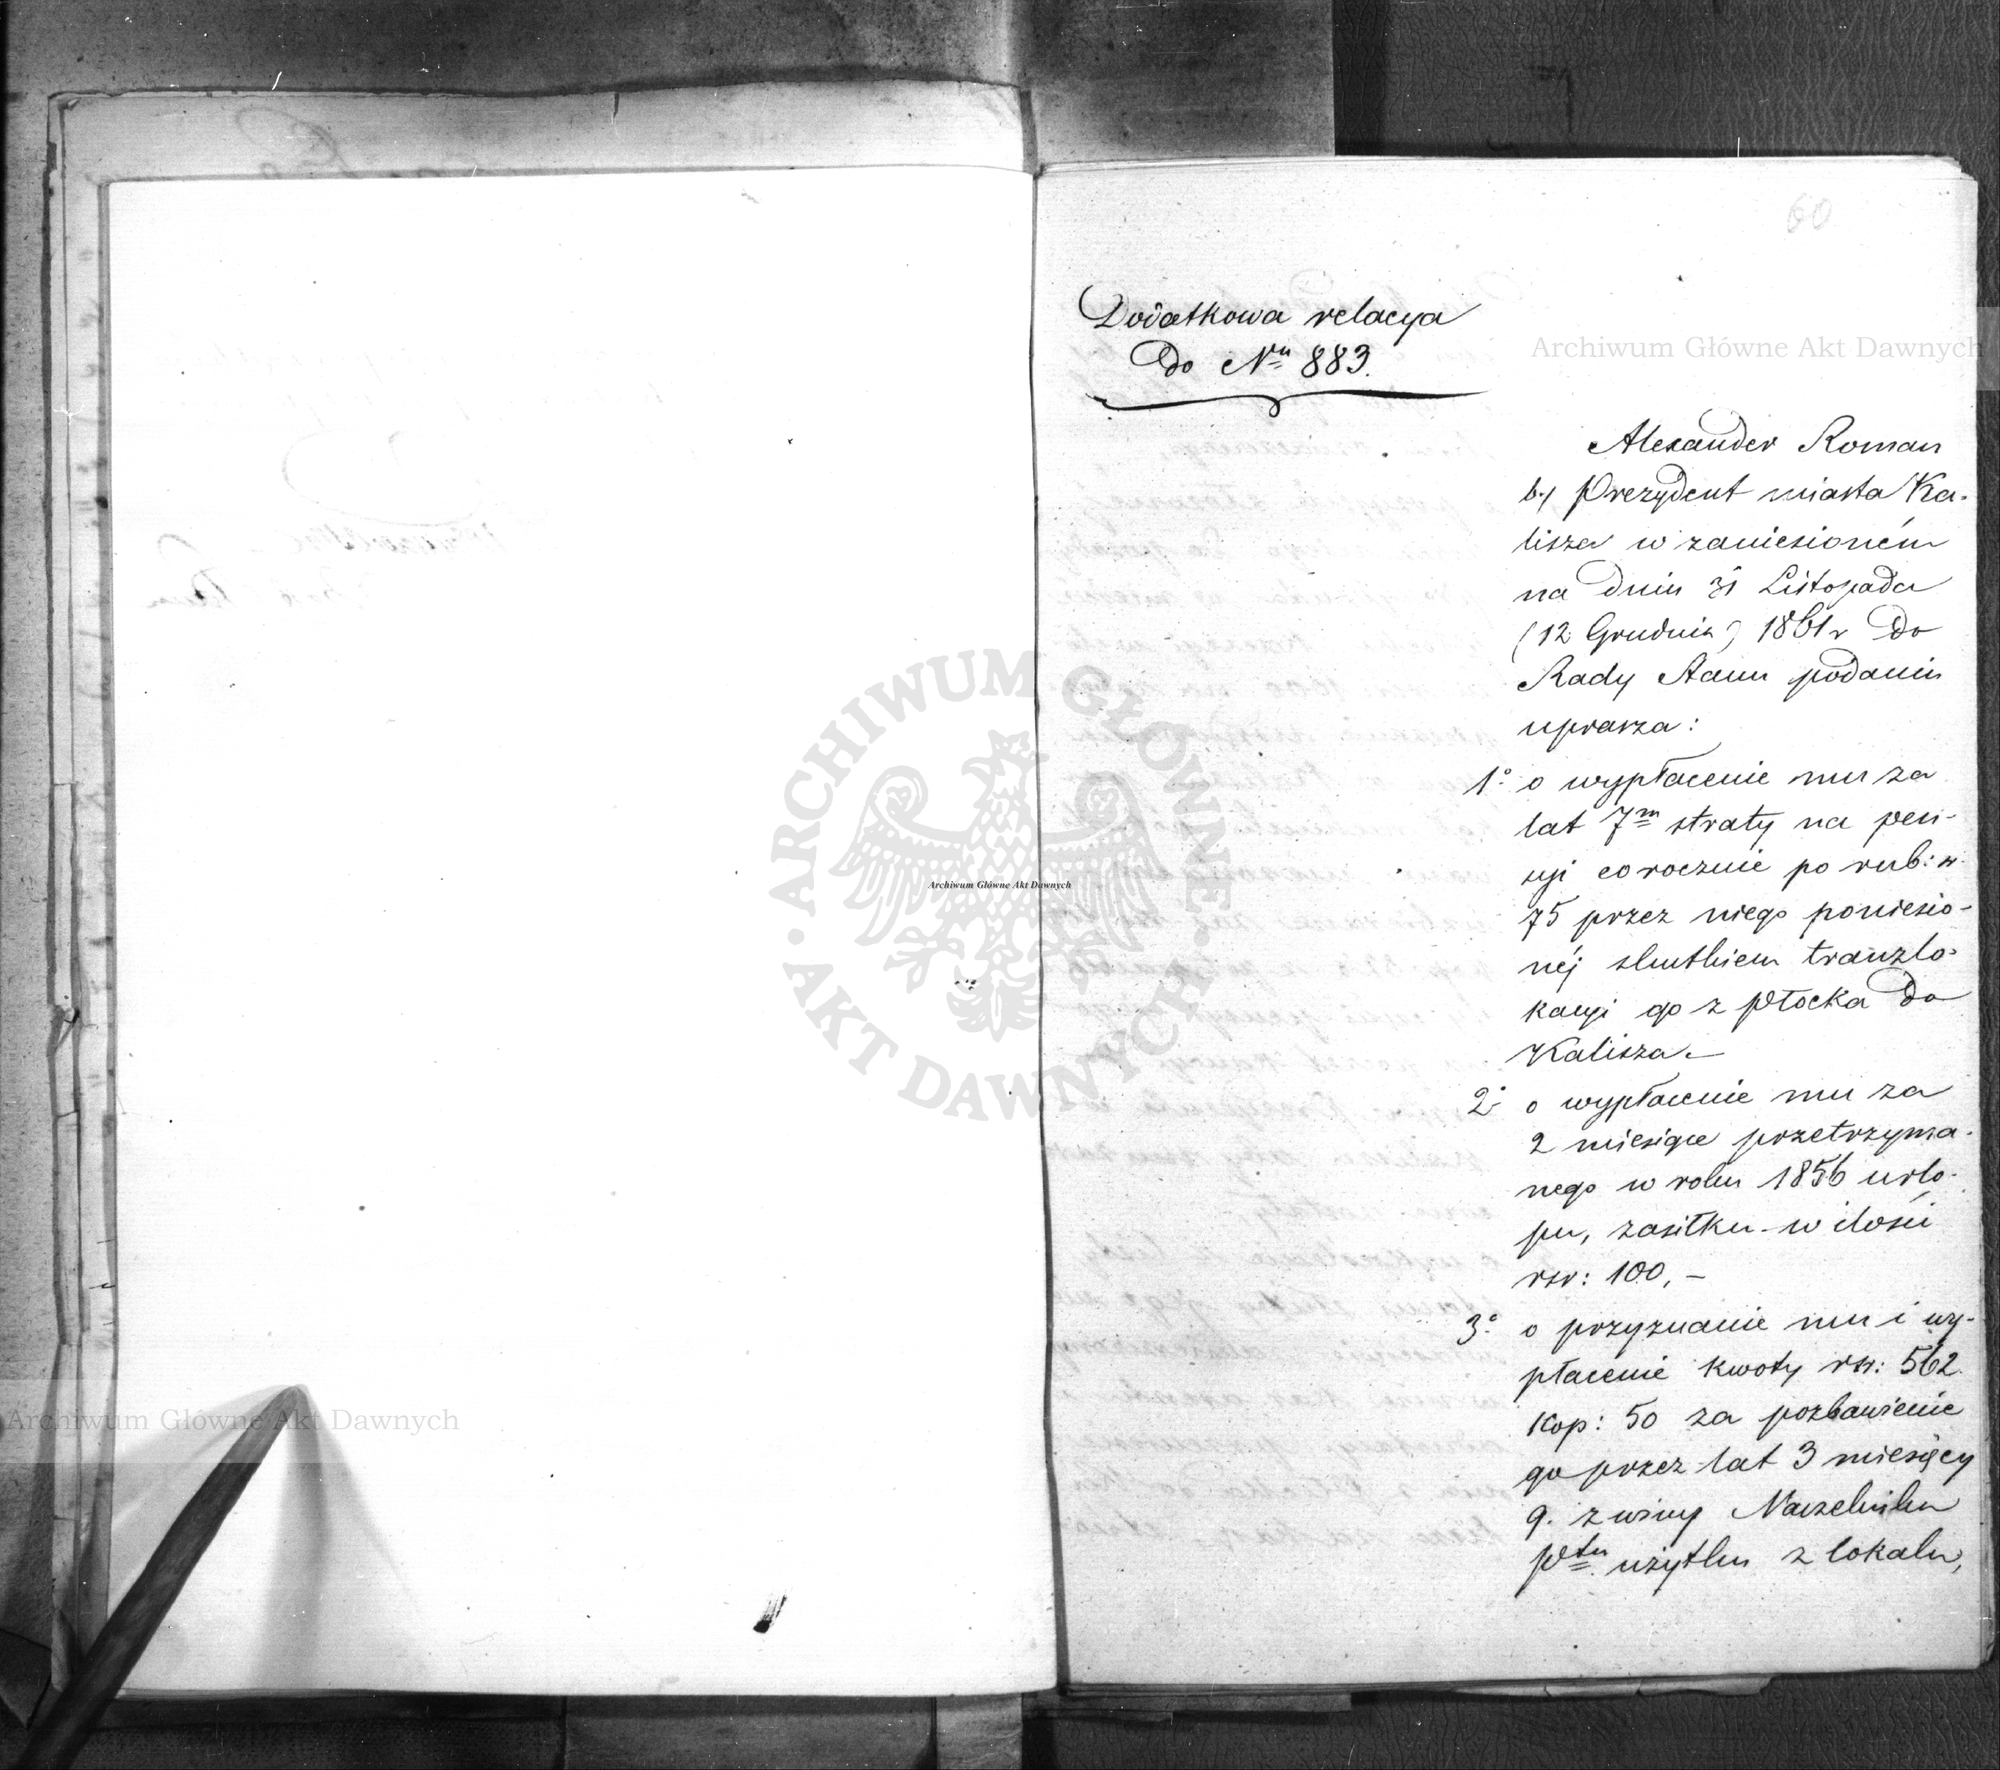 60
Dodatkowa relacya
do Nru 883.
Alexander Roman
b.) Prezydent miasta Ka-
lisza w zaniesioném
na dniu Listopada
(12 Grudnia) 1861 r do
Rady Stanu podaniu
uprasza:
1o o wypłacenie mu za
lat 7m straty na pen-
syi corocznie po rub: sr.
75 przez niego poniesio-
néj skutkiem tranzlo-
kacyi go z Płocka do
Kalisza.—
2o o wypłacenie mu za
2 miesiące przetrzyma-
nego w roku 1856 urlo-
pu, zasiłku w ilości
rsr: 100,—
3o o przyznanie mu i wy-
płacenie kwoty rsr: 562
kop: 50 za pozbawienie
go przez lat 3 miesięcy
9. z winy Naczelnika
Ptu użytku z lokalu,
Archiwum Główne Akt Dawnych
Archiwum Główne Akt Dawnych
Archiwum Główne Akt Dawnych
ARCHIWUM GŁÓWNE
AKT DAWNYCH